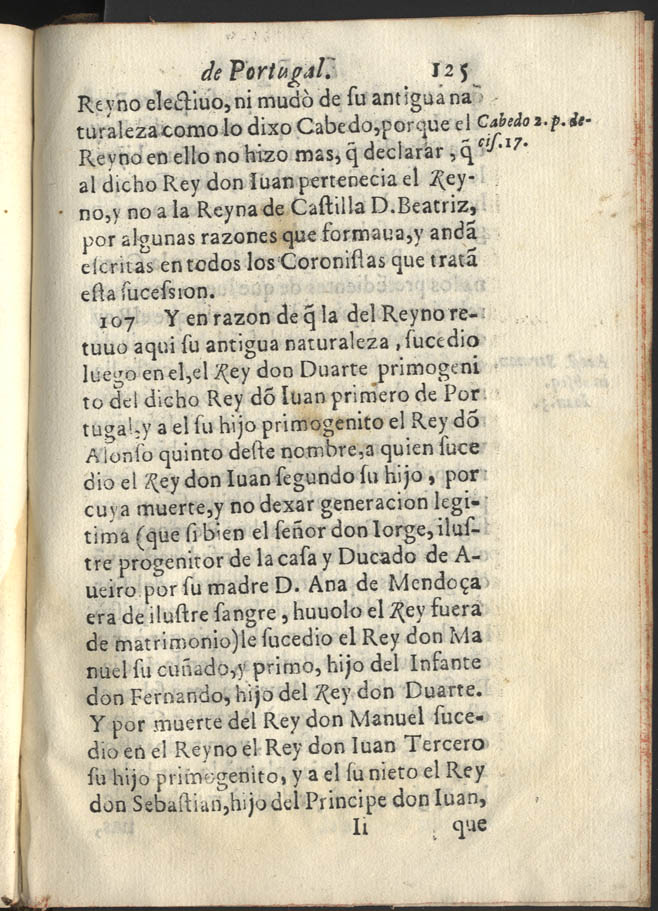 de Portugal. 125
Reyno electiuo, ni mudò de su antigua na
turaleza como lo dixo Cabedo, porque el
Cabedo 2. p. de-
cis. 17.
Reyno en ello no hizo mas, q̃ declarar, q̃
al dicho Rey don Iuan pertenecia el Rey-
no, y no a la Reyna de Castilla D. Beatriz,
por algunas razones que formaua, y andã
escritas en todos los Coronistas que tratã
esta sucession.
107 Y en razon de q̃ la del Reyno re-
tuuo aqui su antigua naturaleza, sucedio
luego en el, el Rey don Duarte primogeni
to del dicho Rey dõ Iuan primero de Por
tugal, y a el su hijo primogenito el Rey dõ
Alonso quinto deste nombre, a quien suce
dio el Rey don Iuan segundo su hijo, por
cuya muerte, y no dexar generacion legi-
tima (que si bien el señor don Iorge, ilus-
tre progenitor de la casa y Ducado de A-
ueiro por su madre D. Ana de Mendoça
era de ilustre sangre, huuolo el Rey fuera
de matrimonio) le sucedio el Rey don Ma
nuel su cuñado, y primo, hijo del Infante
don Fernando, hijo del Rey don Duarte.
Y por muerte del Rey don Manuel suce-
dio en el Reyno el Rey don Iuan Tercero
su hijo primogenito, y a el su nieto el Rey
don Sebastian, hijo del Principe don Iuan,
Ii que